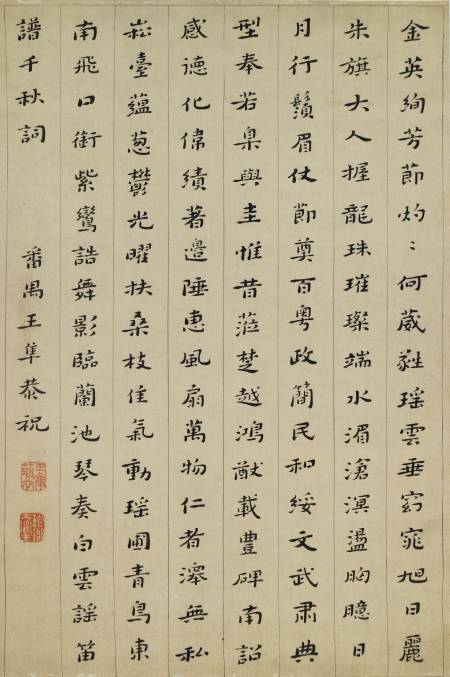 金英絢芳節灼〻何葳蕤瑶雲垂窈窕旭日麗
朱旗大人握龍珠璀璨端水湄滄溟盪胸臆日
月行鬚眉仗節奠百粤政簡民和綏文武肅典
型奉若臬與圭惟昔蒞楚越鴻猷載豊碑南詔
感德化偉績著邉陲惠風扇萬物仁者澤無私
崧臺蘊葱欝光曜扶桑枝佳氣動瑶圃青鳥東
南飛口銜紫鸞誥舞影臨蘭池琴奏白雲謡笛
譜千秋詞　番禺王隼恭祝